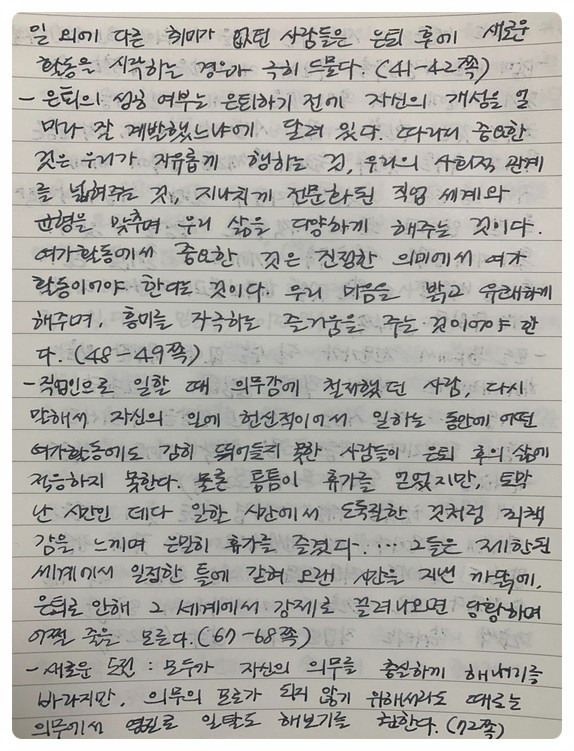 일 외에 다른 취미가 없던 사람들은 은퇴 후에 새로운
활동을 시작하는 경우가 극히 드물다. (41-42쪽)
- 은퇴의 성공 여부는 은퇴하기 전에 자신의 개성을 얼
마나 잘 계발했느냐에 달려 있다. 따라서 중요한
것은 우리가 자유롭게 행하는 것, 우리의 사회적 관계
를 넓혀주는 것, 지나치게 전문화된 직업 세계와
균형을 맞추며 우리 삶을 다양하게 해주는 것이다.
여가활동에서 중요한 것은 진정한 의미에서 여가
활동이어야 한다는 것이다. 우리 마음을 밝고 유쾌하게
해주며, 흥미를 자극하는 즐거움을 주는 것이어야 한
다. (48-49쪽)
- 직업인으로 일할 때 의무감에 철저했던 사람, 다시
말해서 자신의 일에 헌신적이어서 일하는 동안에 어떤
여가활동에도 감히 뛰어들지 못한 사람들이 은퇴 후의 삶에
적응하지 못한다. 물론 틈틈이 휴가를 얻었지만, 토막
난 시간인 데다 일할 시간에서 도둑질한 것처럼 죄책
감을 느끼며 은밀히 휴가를 즐겼다.... 그들은 제한된
세계에서 일정한 틀에 갇혀 오랜 시간을 지낸 까닭에,
은퇴로 인해 그 세계에서 강제로 끌려나오면 당황하며
어쩔 줄을 모른다. (67-68쪽)
- 새로운 도전 : 모두가 자신의 의무를 충실하게 해내기를
바라지만, 의무의 포로가 되지 않기 위해서라도 때로는
의무에서 일탈도 해보기를 권한다. (72쪽)